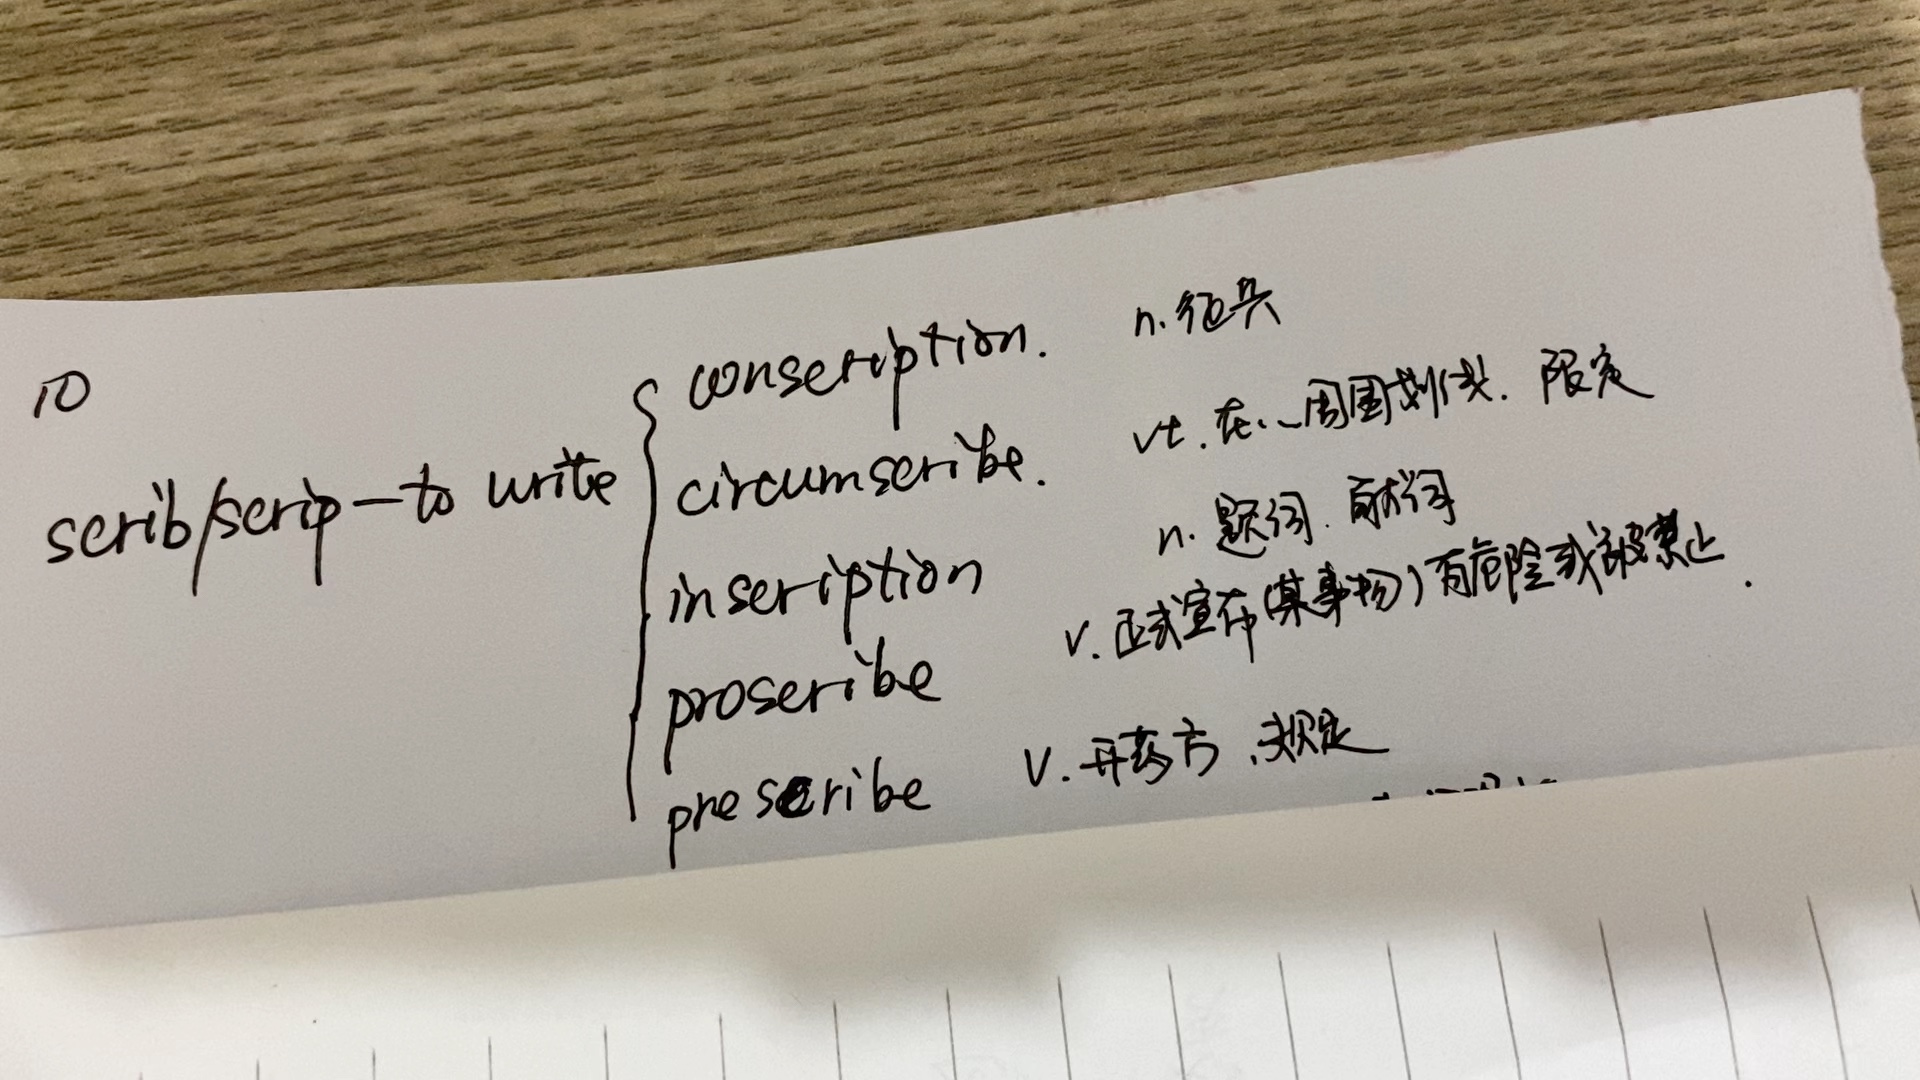 10
scrib/scrip — to write
conscription. n. 征兵
circumscribe. vt. 在…周围划线. 限定
inscription n. 题词. 献词
proscribe v. 正式宣布(某事物)有危险或被禁止.
prescribe v. 开药方、规定